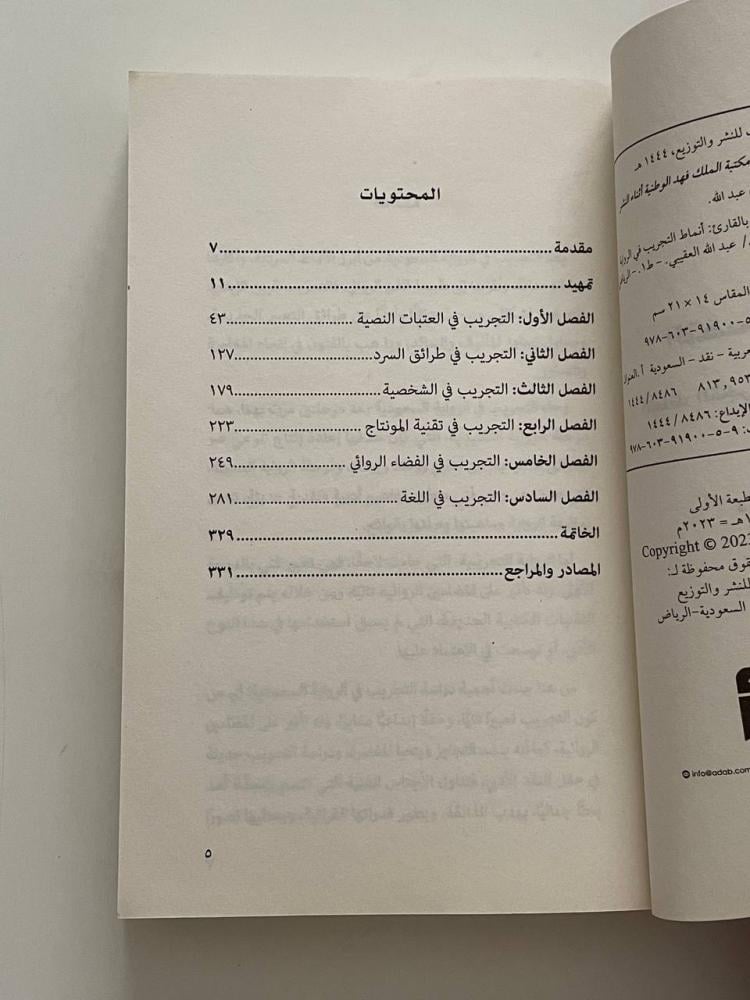 المحتويات
مقدمة ........ ٧
تمهيد ........ ١١
الفصل الأول: التجريب في العتبات النصية ........ ٤٣
الفصل الثاني: التجريب في طرائق السرد ........ ١٢٧
الفصل الثالث: التجريب في الشخصية ........ ١٧٩
الفصل الرابع: التجريب في تقنية المونتاج ........ ٢٢٣
الفصل الخامس: التجريب في الفضاء الروائي ........ ٢٤٩
الفصل السادس: التجريب في اللغة ........ ٢٨١
الخاتمة ........ ٣٢٩
المصادر والمراجع ........ ٣٣١
٥
للنشر والتوزيع، ١٤٤٤ هـ
مكتبة الملك فهد الوطنية أثناء النشر
عبد الله.
بالقارئ: أنماط التجريب في
/ عبد الله العقيبي. - ط١. -
المقاس ١٤ × ٢١ سم
٩٧٨-٦٠٣-٩١٩٠٠-٥
عربية - نقد - السعودية أ. العنوان
٨١٣,٩٥٣ ١٤٤٤/٨٤٨٦
الإيداع: ١٤٤٤/٨٤٨٦
٩٧٨-٦٠٣-٩١٩٠٠-٥-٩
طبعة الأولى
هـ = ٢٠٢٣م
Copyright © 2023
حقوق محفوظة لـ:
للنشر والتوزيع
السعودية-الرياض
info@adab.com